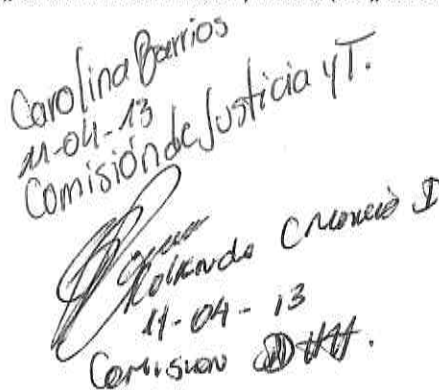 Carolina Barrios
11-04-13
Comisión de Justicia y T.
Rolando
11-04-13
Comision DDHH.